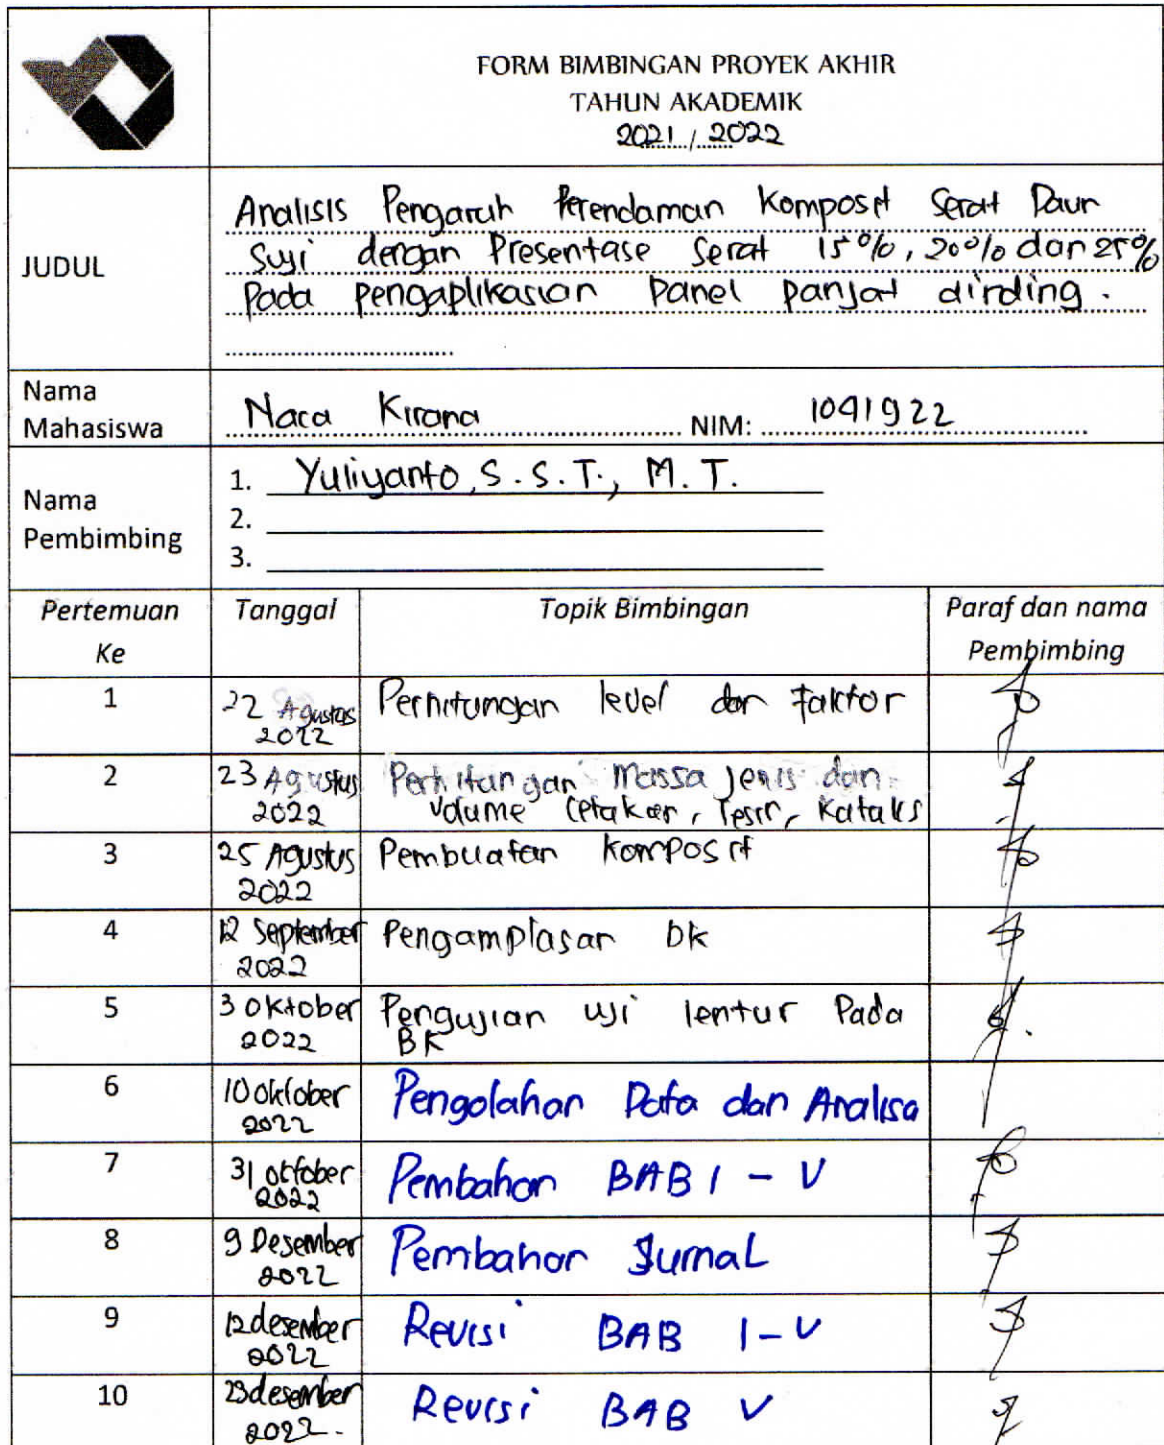 FORM BIMBINGAN PROYEK AKHIR
TAHUN AKADEMIK
2021 / 2022
JUDUL
Analisis Pengaruh Perendaman Komposit Serat Daun
Suji dengan Presentase Serat 15%, 20% dan 25%
Pada pengaplikasian Panel panjat dinding.
Nama
Mahasiswa
Naca Kirana NIM: 1041922
Nama
Pembimbing
1. Yuliyanto, S.S.T., M.T.
2.
3.
Pertemuan
Ke
Tanggal
Topik Bimbingan
Paraf dan nama
Pembimbing
1
22 Agustus
2022
Perhitungan level dan faktor
2
23 Agustus
2022
Perhitungan Massa jenis dan
Volume Cetakan, resin, Katalis
3
25 Agustus
2022
Pembuatan komposit
4
12 September
2022
Pengamplasan bk
5
3 Oktober
2022
Pengujian uji lentur Pada
BK
6
10 Oktober
2022
Pengolahan Data dan Analisa
7
31 oktober
2022
Pembahan BAB I - V
8
9 Desember
2022
Pembahan Jurnal
9
12 desember
2022
Revisi BAB I-V
10
23 desember
2022.
Revisi BAB V